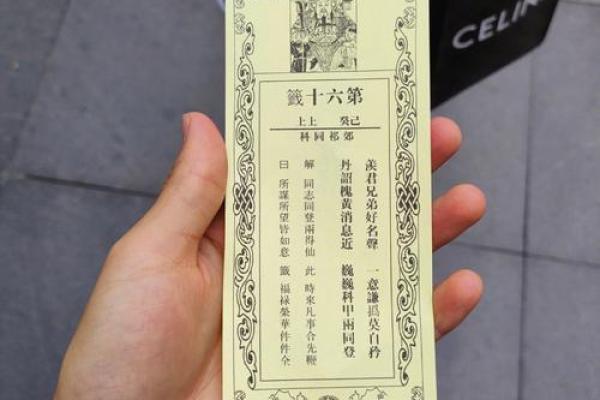 第六十籤
己癸 上上
郊祁同科
羨君兄弟好名聲 一意謙撝莫自矜
丹詔槐黃消息近 巍巍科甲兩同登
解 同志同登兩得仙 此 時來凡事合先鞭
曰 所謀所望皆如意 籤 福祿榮華件件全
CELIN